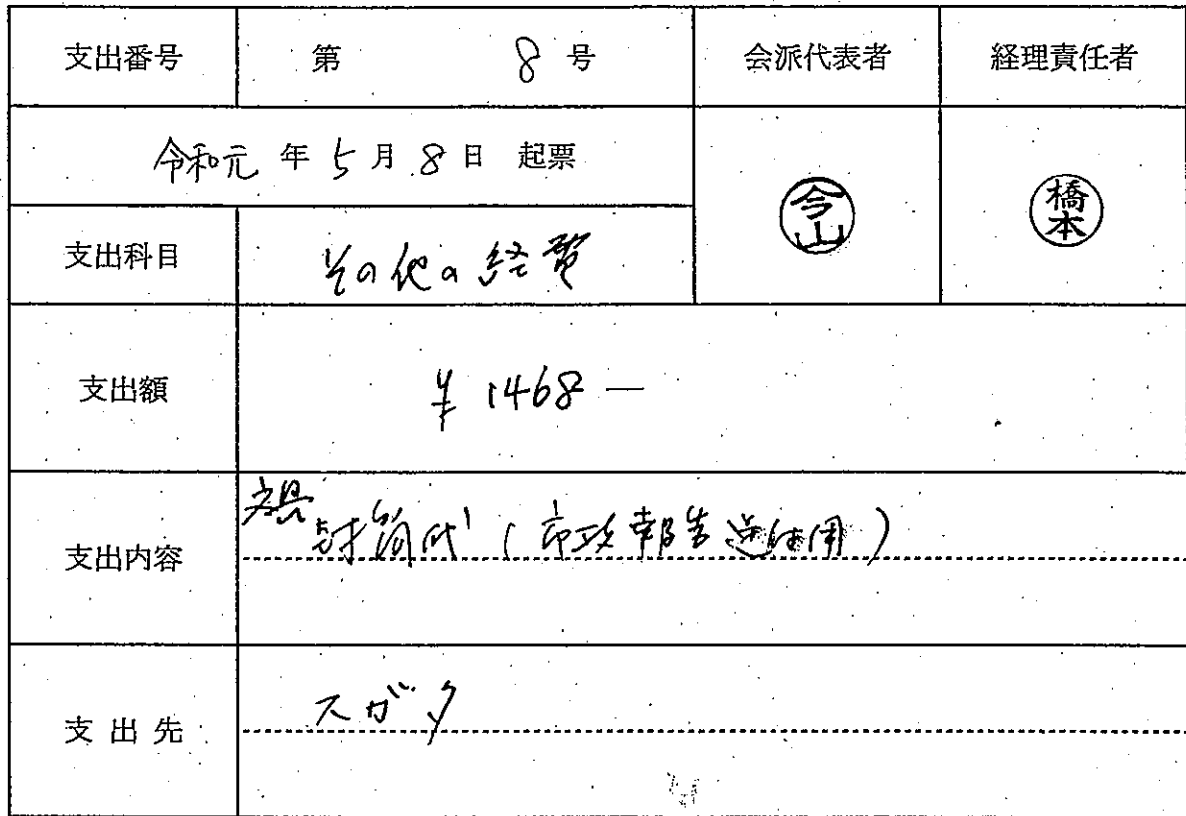 支出番号 第 8 号 会派代表者 経理責任者
令和元 年 5 月 8 日 起票
今山 橋本
支出科目 その他の経費
支出額 ¥1468―
支出内容 封筒代(市政報告送付用)
支出先 スガタ